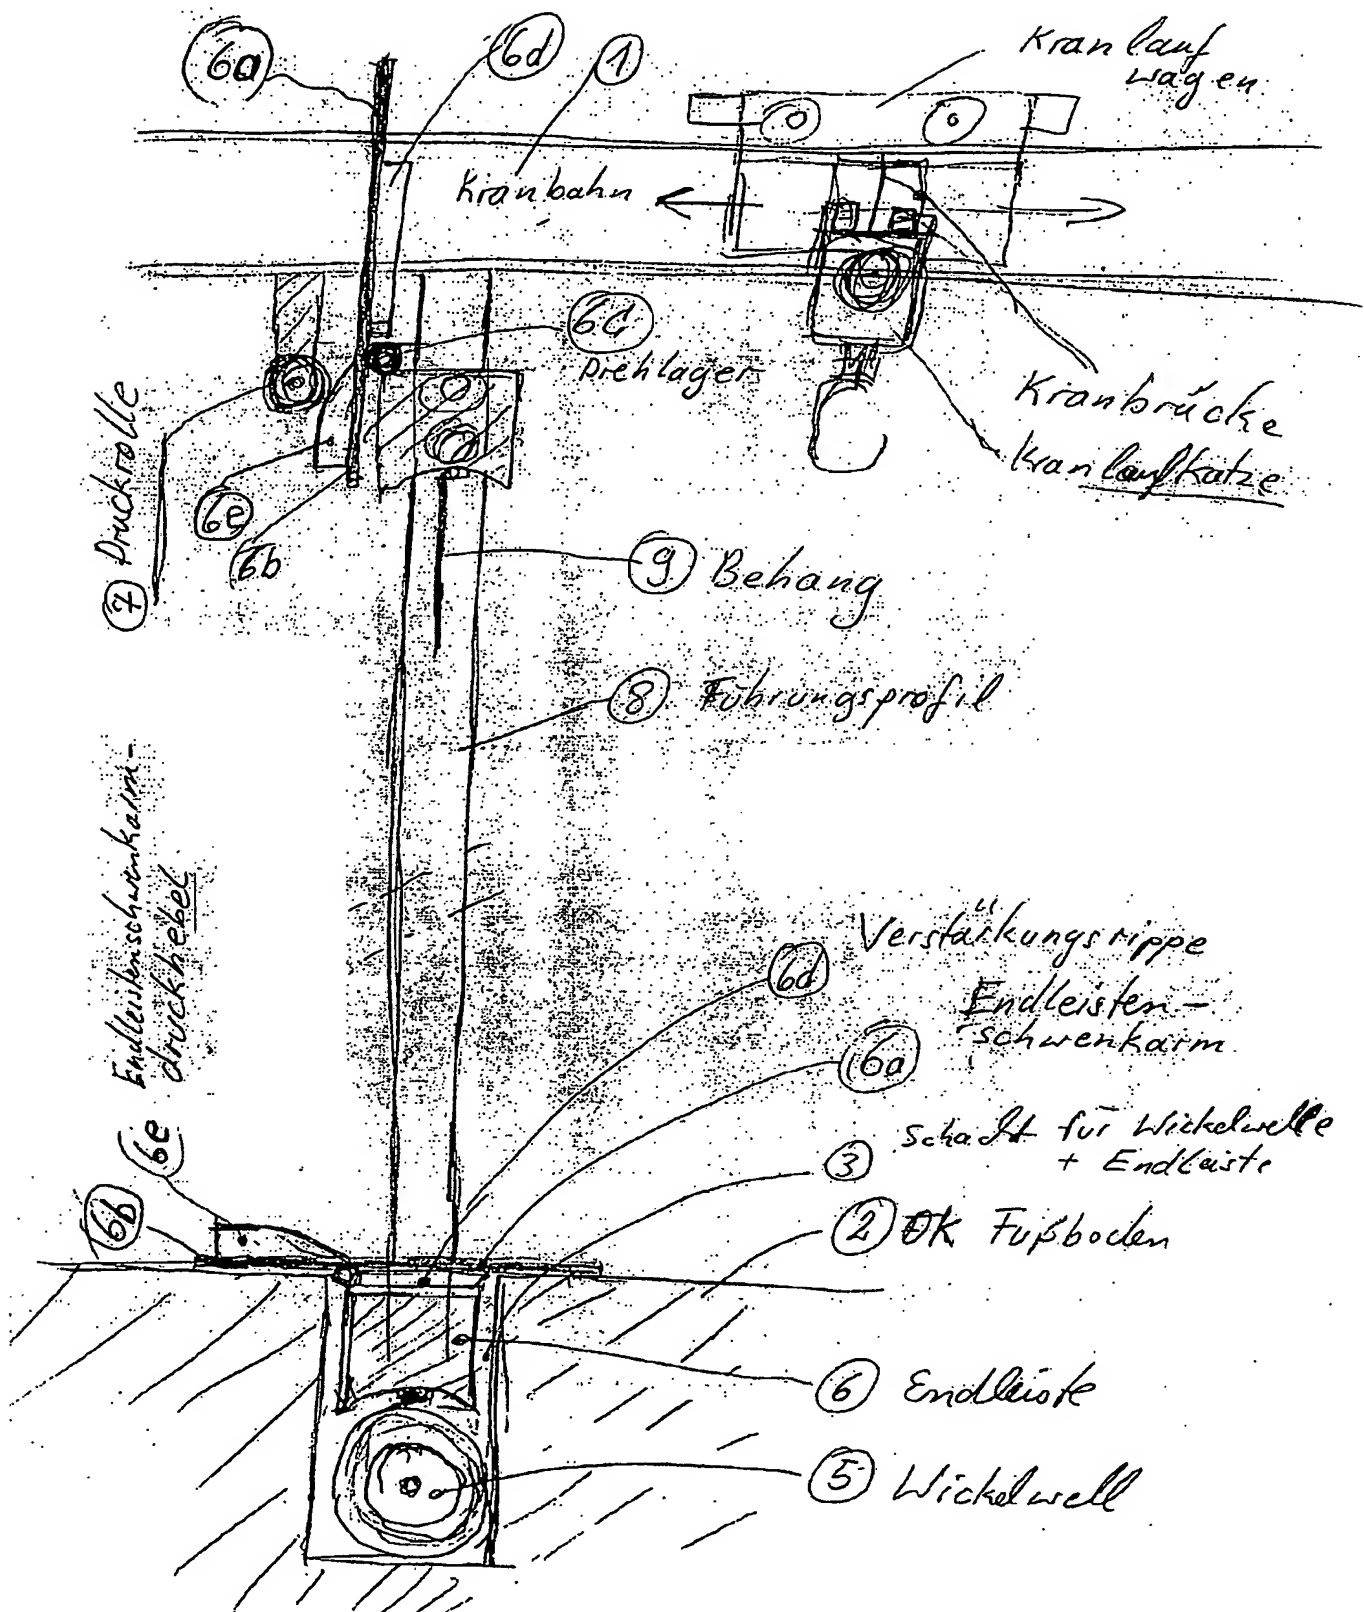 6a
6d
1
Kranlauf
wagen
Kranbahn
6c
Drehlager
Kranbrücke
Kranlaufkatze
7 Druckrolle
6e
6b
9 Behang
8 Führungsprofil
Endleistenschwenkarm-
druckhebel
6e
6b
6d Verstärkungsrippe
Endleisten-
schwenkarm
6a
3 Schacht für Wickelwelle
+ Endleiste
2 OK Fußboden
6 Endleiste
5 Wickelwell